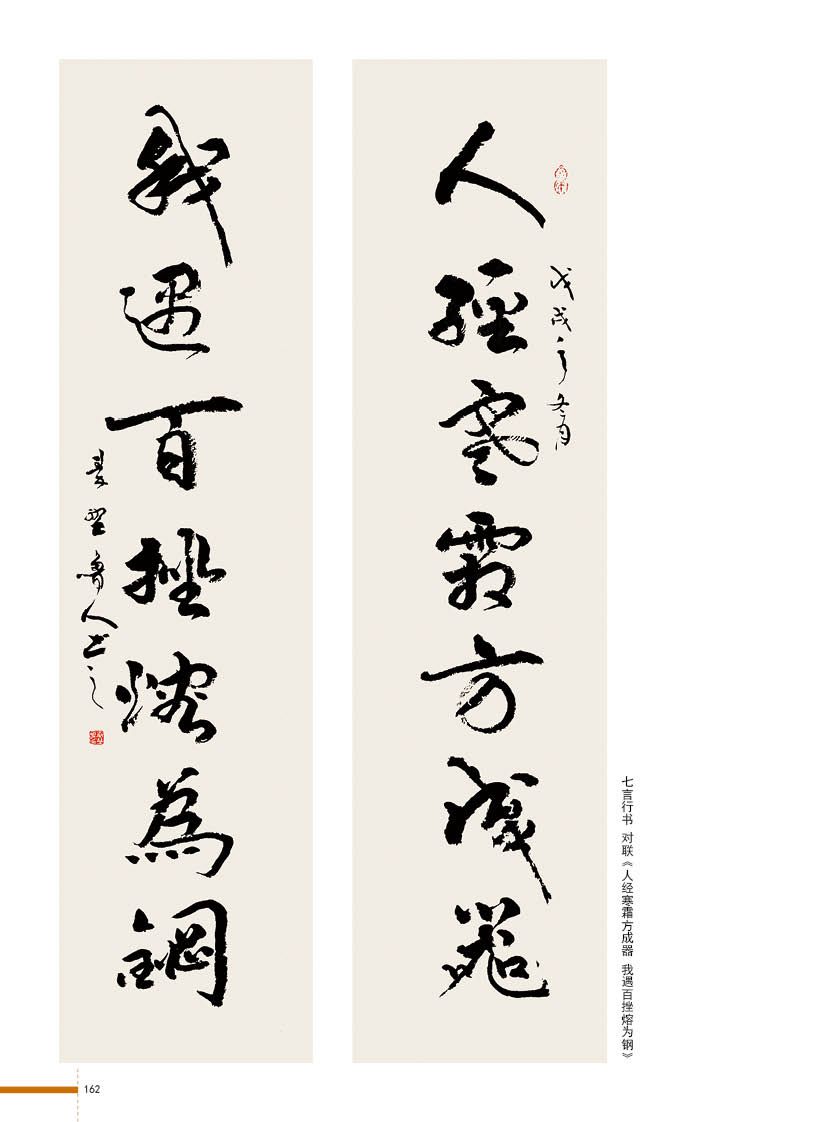 人經寒霜方成器
戊戌之冬月
我遇百挫熔為鋼
魯人书之
七言行书 对联《人经寒霜方成器 我遇百挫熔为钢》
162